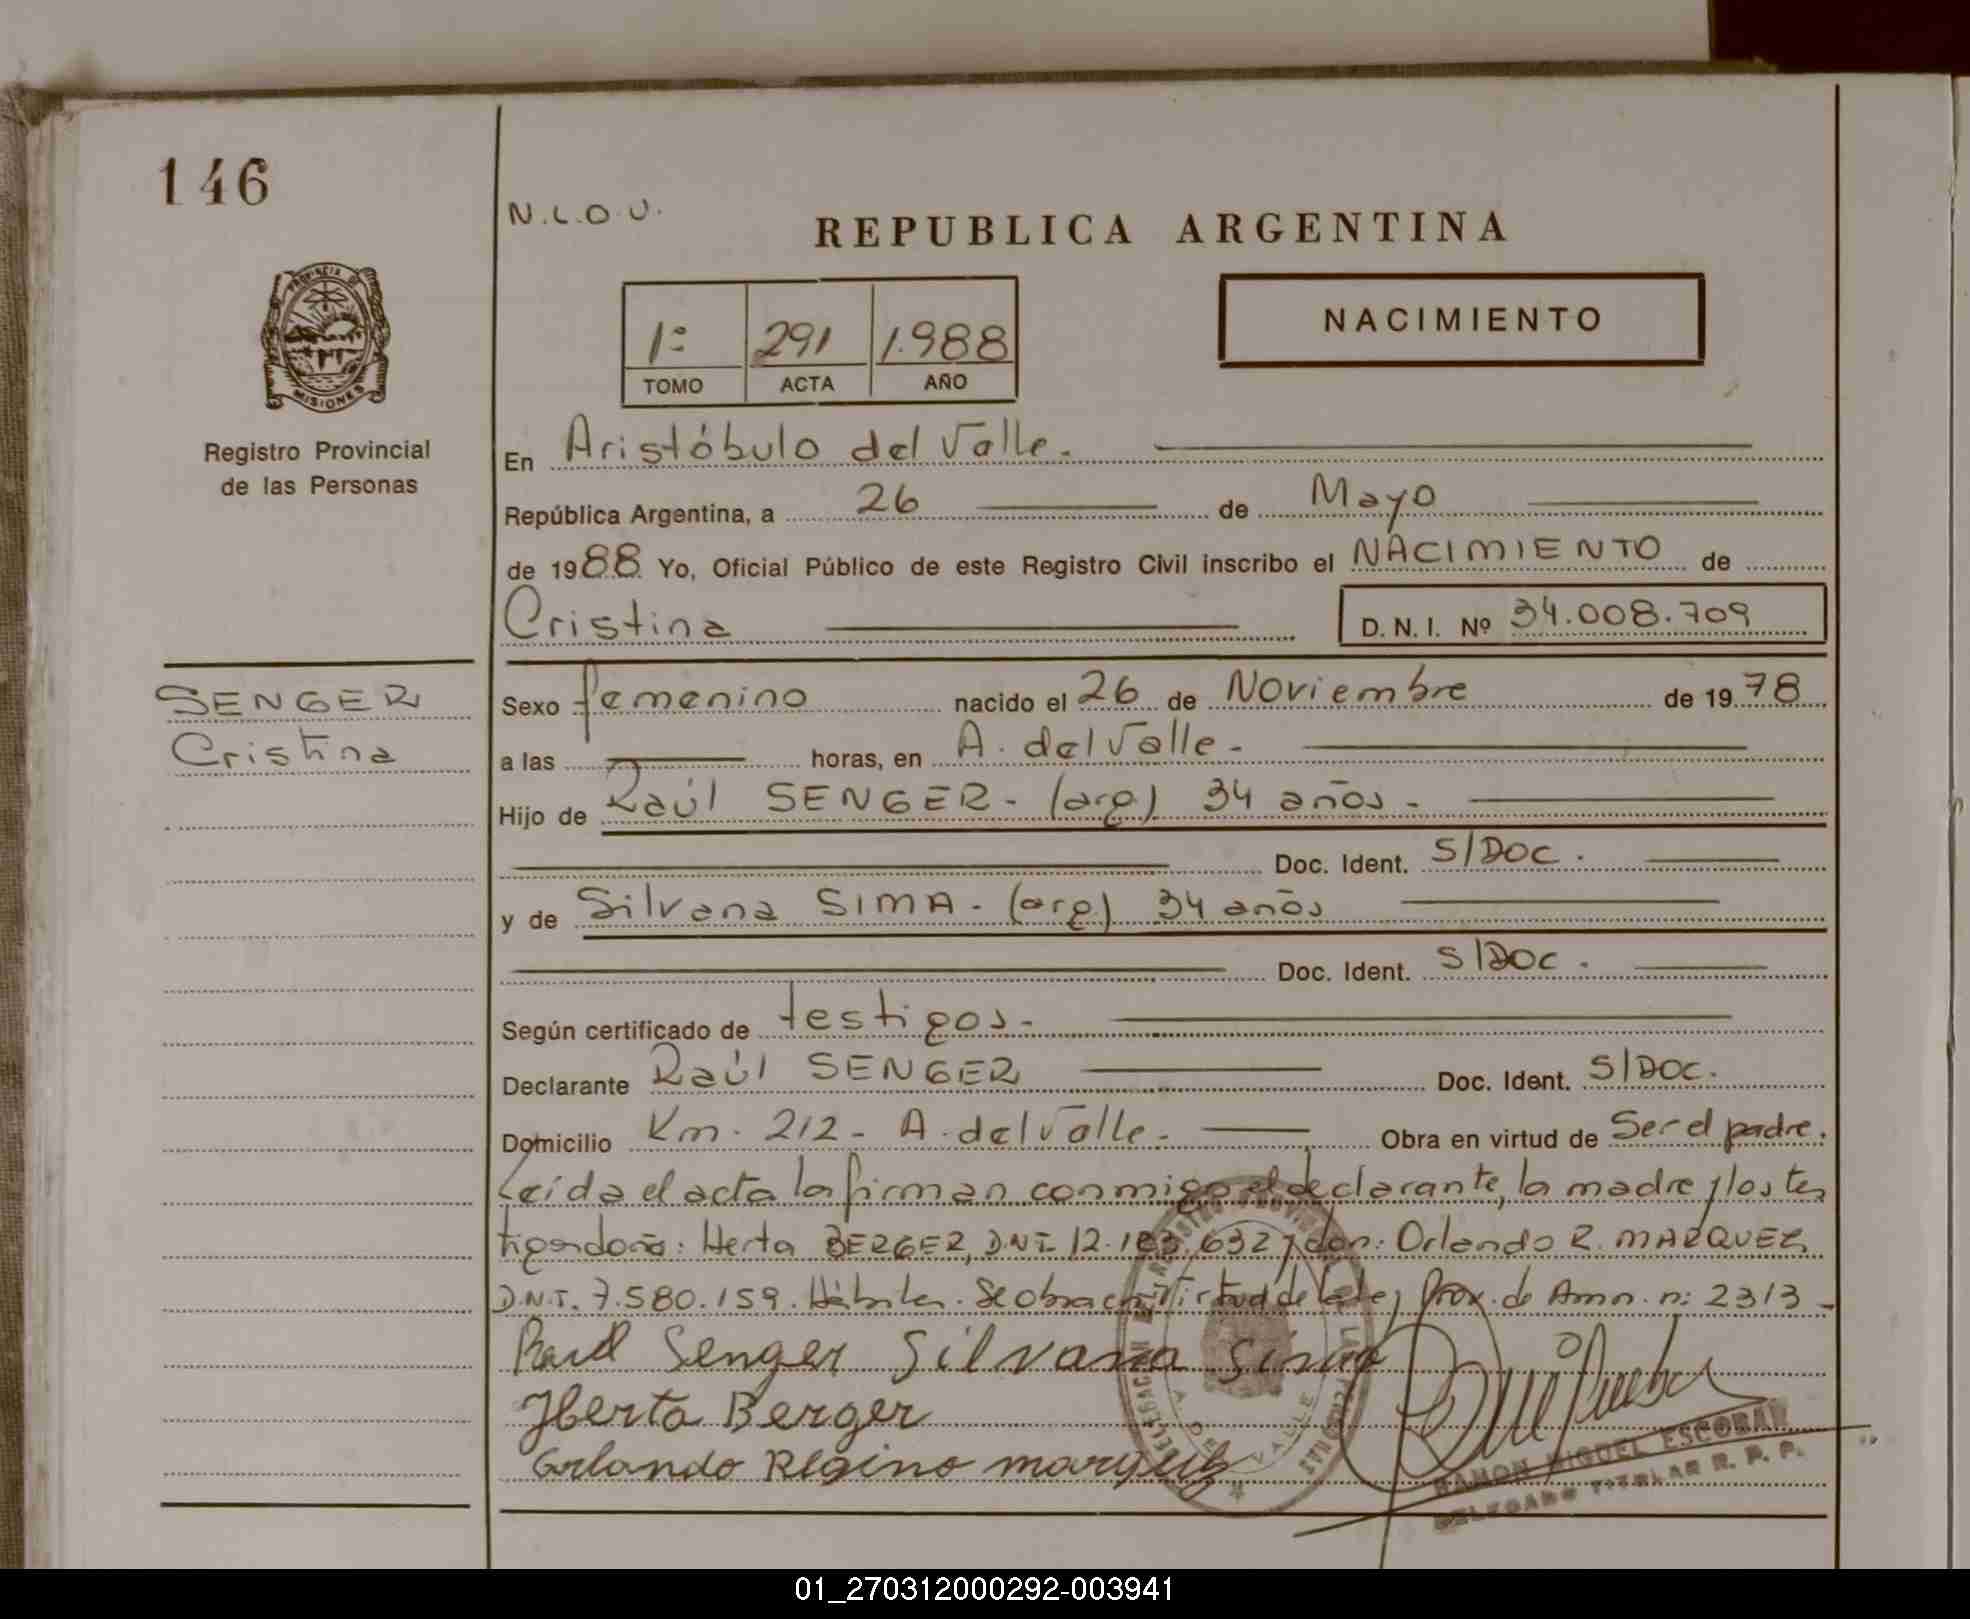 146
N.L.O.U.
REPUBLICA ARGENTINA
PROVINCIA DE
MISIONES
1º 291 1.988
TOMO ACTA AÑO
NACIMIENTO
Registro Provincial
de las Personas
En Aristóbulo del Valle.
República Argentina, a 26 de Mayo
de 1988 Yo, Oficial Público de este Registro Civil inscribo el NACIMIENTO de
Cristina D. N. I. Nº 34.008.709
SENGER
Cristina
Sexo femenino nacido el 26 de Noviembre de 1978
a las horas, en A. del Valle -
Hijo de Raúl SENGER - (arg) 34 años -
Doc. Ident. S/DOC.
y de Silvana SIMA - (arg) 34 años
Doc. Ident. S/DOC.
Según certificado de testigos -
Declarante Raúl SENGER Doc. Ident. S/DOC.
Domicilio Km. 212 - A. del Valle - Obra en virtud de Ser el padre.
Leída el acta la firman conmigo el declarante, la madre y los tes
tigos doña: Herta BERGER, D.N.I. 12.183.632 y don: Orlando R. MARQUEZ
D.N.I. 7.580.159. Hábiles. Se obra en virtud de la ley Prov. de Amn. n: 2313 -
Raul Senger Silvana Sima
Herta Berger
Orlando Regino marquez
RAMON MIGUEL ESCOBAR
DELEGADO TITULAR R. P. P.
01_270312000292-003941